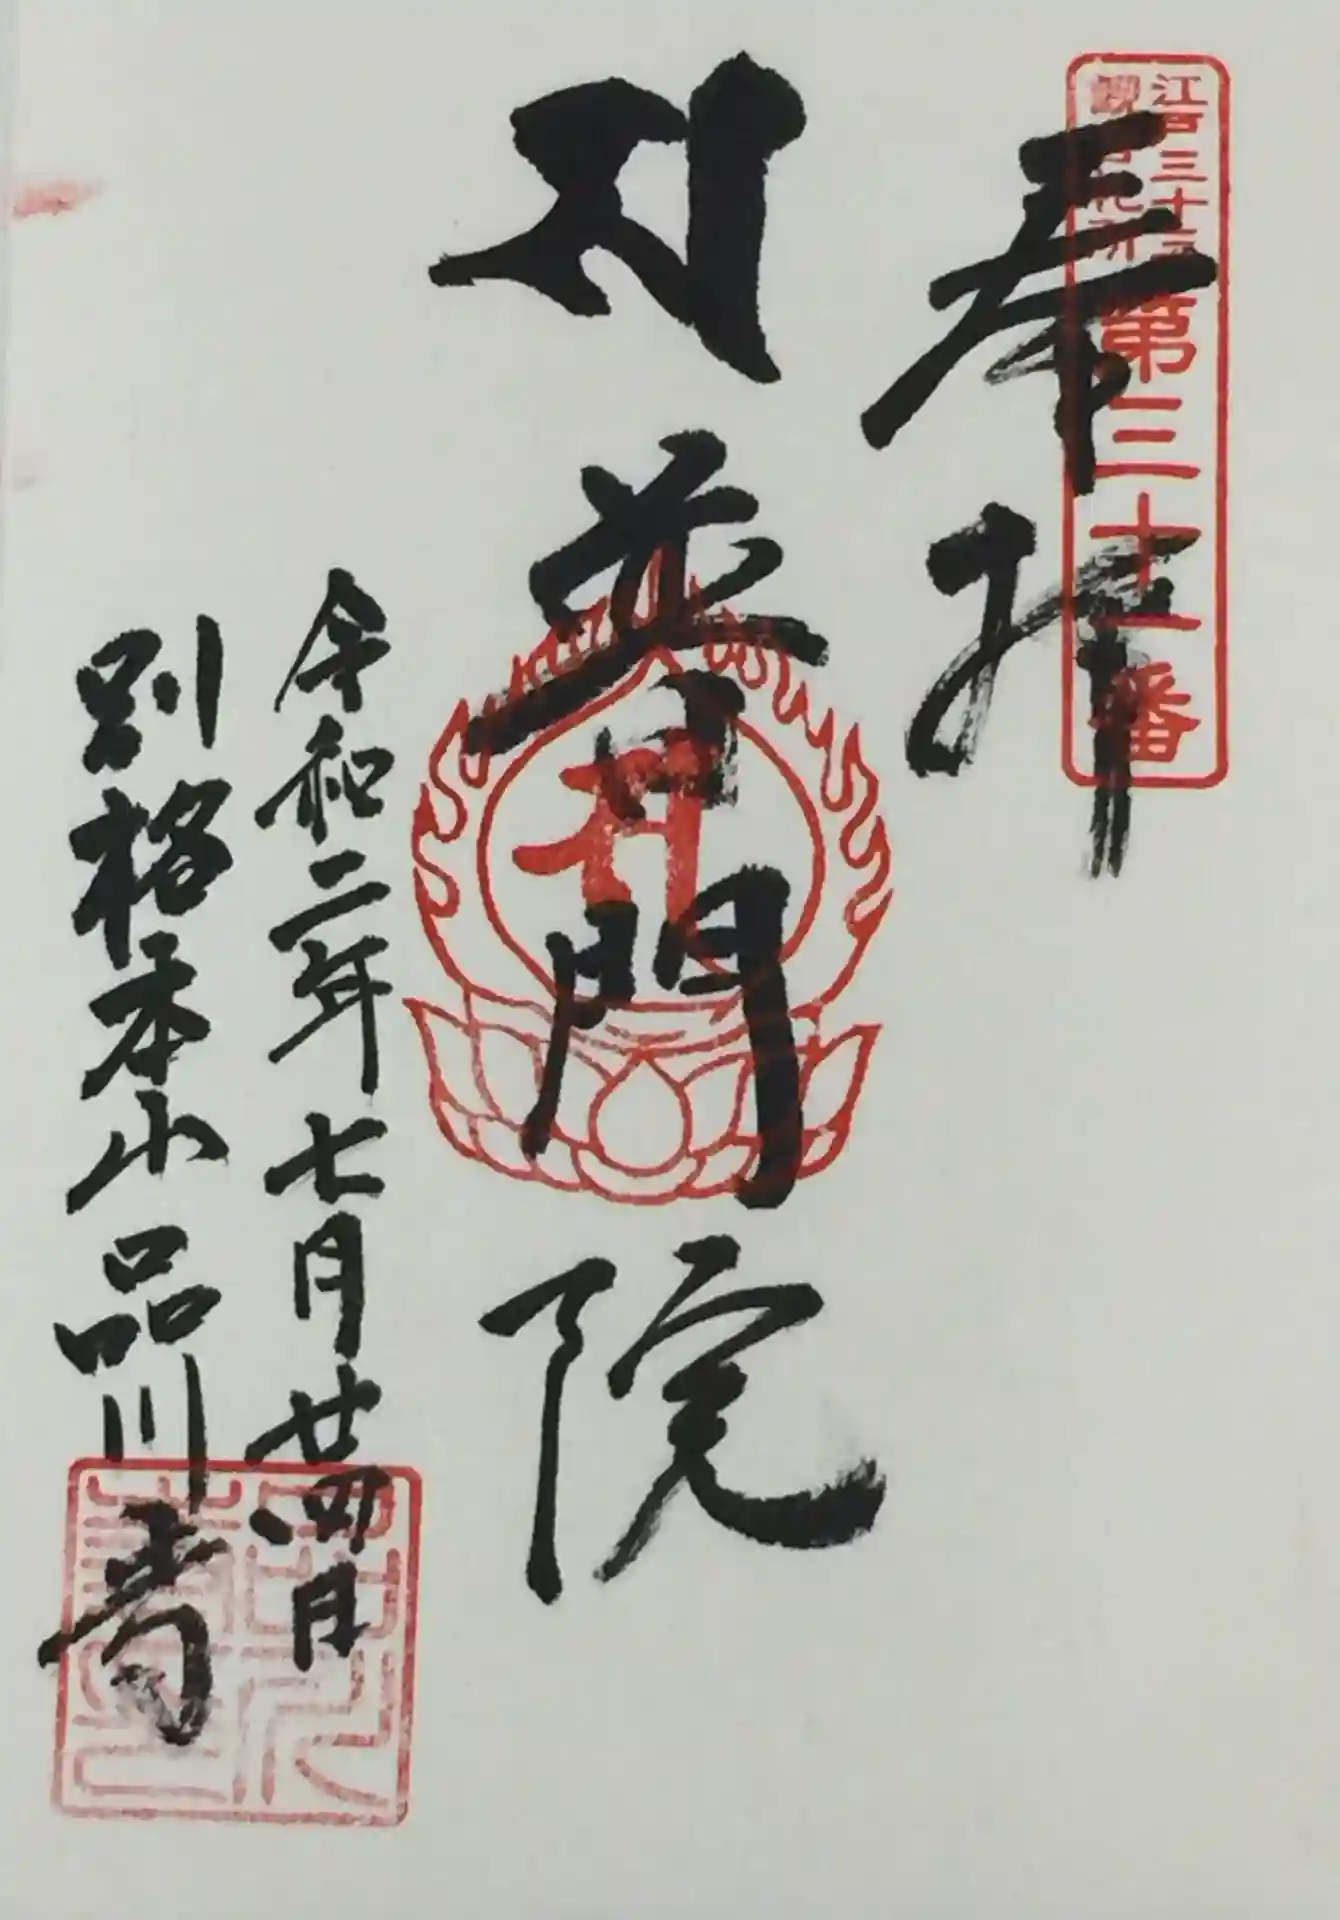 江戸三十三
観音札所
第三十一番
奉拝
普門院
令和二年七月廿四日
別格本山品川寺